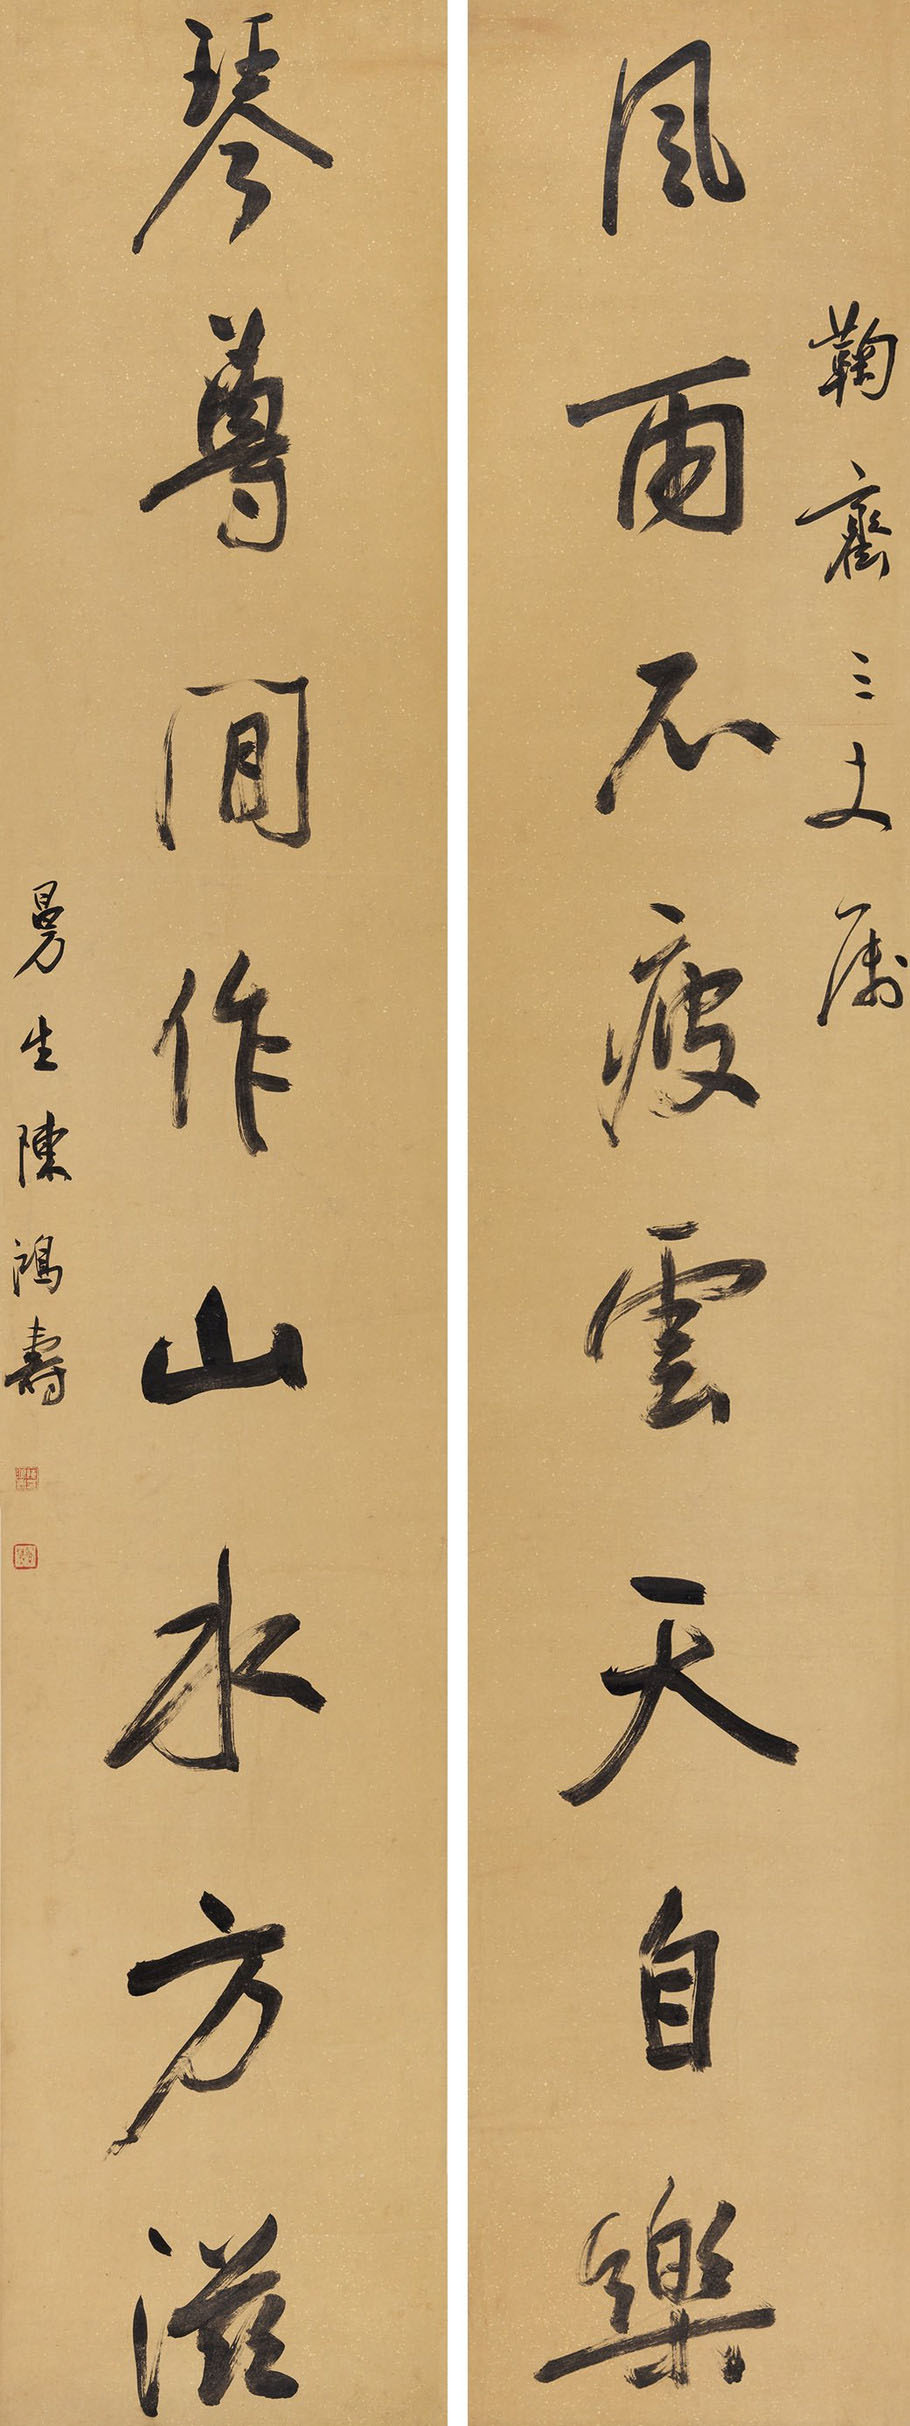 鞠裳三丈属
風雨不疲雲天自樂
琴尊閒作山水方滋
曼生陳鴻壽